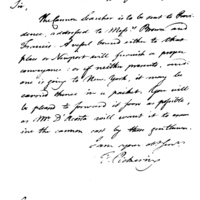 Sir,
The Cannon Searcher is to be sent to Provi-
dence, addressed to Messrs. Brown and
Francis. A vessel bound either to that
place or Newport will furnish a proper
conveyance: or if neither presents, and
one is going to New York, it may be
carried thence in a packet. You will
be pleased to forward it soon as possible,
as Mr. D'Acosta will want it to exam-
ine the cannon cast by those gentlemen.
I am your obt. Servt.
T. Pickering